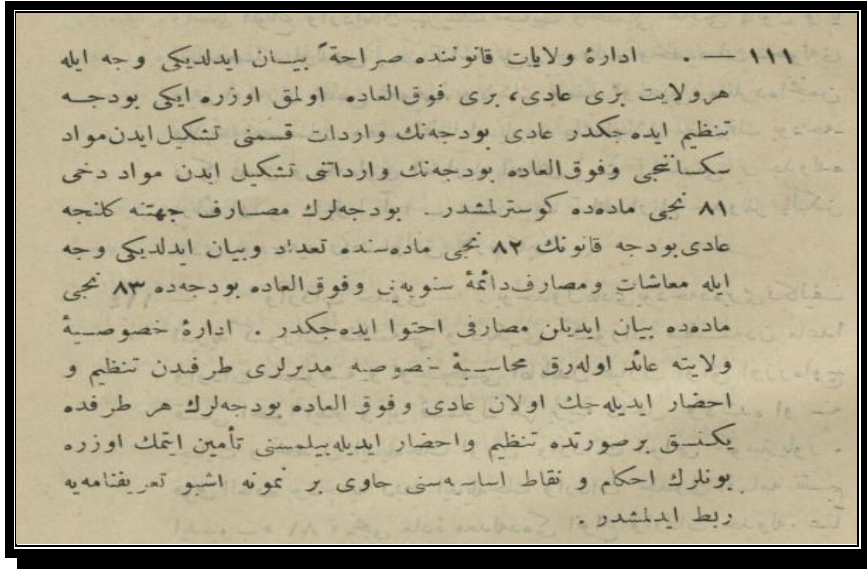 ١١١ — . ادارۀ ولایات قانوننده صراحةً بیـــان ایدلدیکی وجه ایله
هرولایت بری عادی، بری فوق‌العاده اولمق اوزره ایکی بودجــه
تنظیم ایده‌جکدر عادی بودجه‌نك واردات قسمنی تشکیل‌ایدن‌مواد
سکساننجی وفوق‌العاده بودجه‌نك وارداتنی تشکیل ایدن مواد دخی
٨١ نجی ماده‌ده کوسترلمشدر. بودجه‌لرك مصــارف جهتنه کلنجه
عادی‌بودجه قانونك ٨٢ نجی ماده‌سنده تعداد وبیان ایدلدیکی وجه
ایله معاشات ومصارف‌دائمۀ سنویه‌یی وفوق‌العاده بودجه‌ده ٨٣ نجی
ماده‌ده بیان ایدیلن مصارفی احتوا ایده‌جکدر . ادارۀ خصوصــیۀ
ولایته عائد اوله‌رق محاســبۀ خصوصیه مدیرلری طرفندن تنظیم و
احضار ایدیله‌جك اولان عادی وفوق العاده بودجه‌لرك هر طرفده
یکنسق برصورتده تنظیم واحضار ایدیله‌بیلمسنی تأمین ایتمك اوزره
بونلرك احکام و نقاط اساسیه‌سنی حاوی بر نمونه اشبو تعریفنامه‌یه
ربط ایدلمشدر .